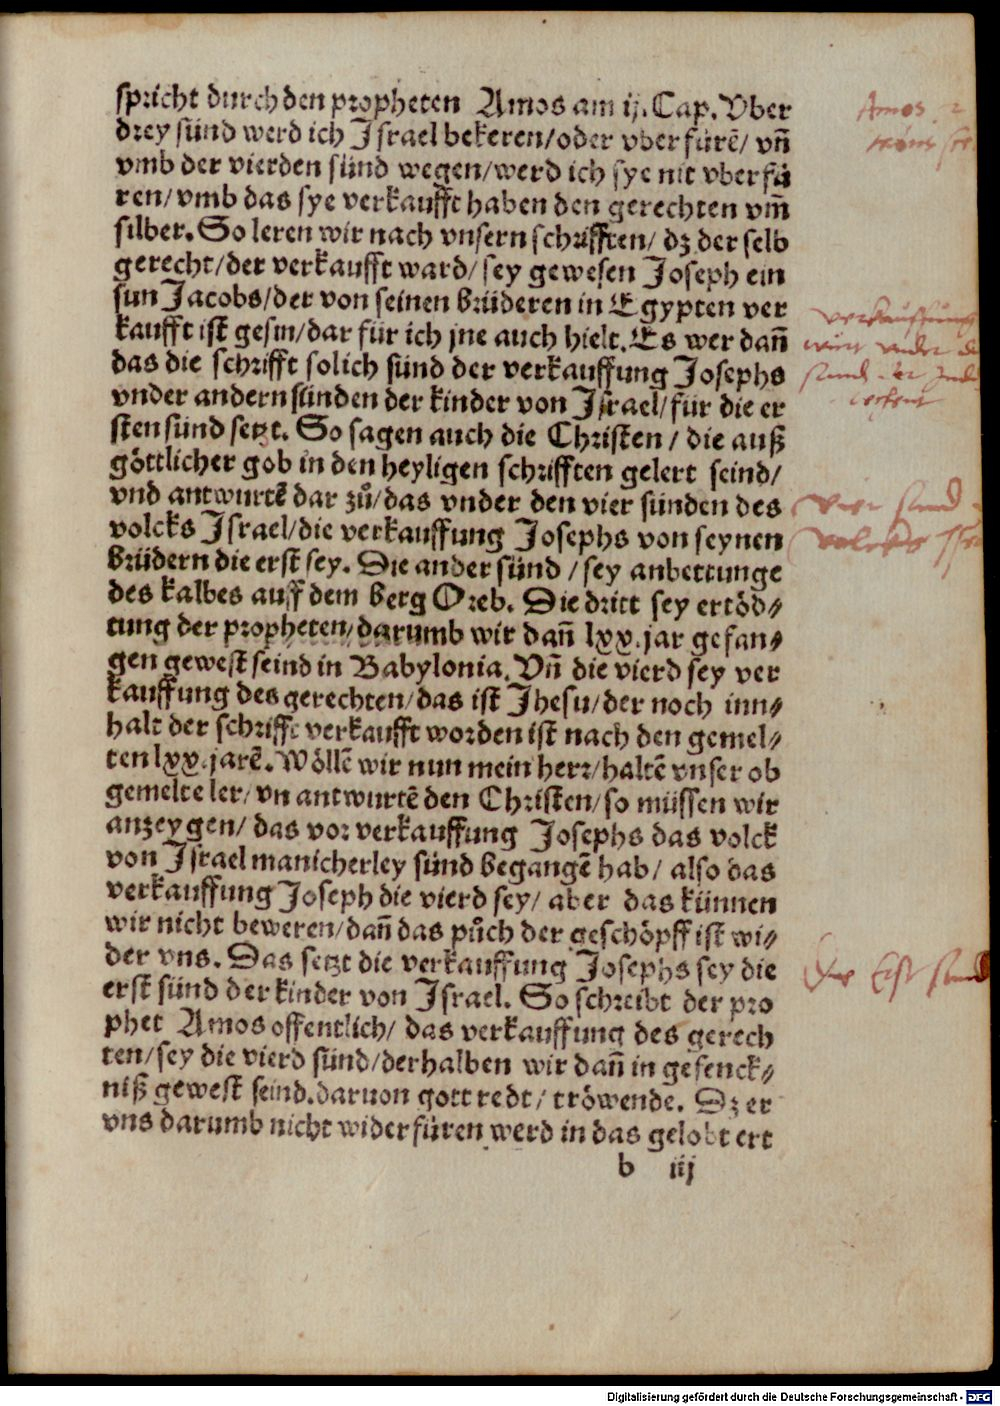 spricht durch den propheten Amos am ij. Cap. Vber
drey sünd werd ich Israel bekeren/oder vber fürē/ vñ
vmb der vierden sünd wegen/werd ich sye nit vberfü
ren/vmb das sye verkaufft haben den gerechten vm̄
silber. So leren wir nach vnsern schrifften/ dz der selb
gerecht/der verkaufft ward/sey gewesen Joseph ein
sun Jacobs/der von seinen brüderen in Egypten ver
kaufft ist gesin/dar für ich jne auch hielt. Es wer dañ
das die schrifft solich sünd der verkauffung Josephs
vnder andern sünden der kinder von Israel/für die er
sten sünd setzt. So sagen auch die Christen/ die auß
göttlicher gob in den heyligen schrifften gelert seind/
vnd antwurtē dar zů/das vnder den vier sünden des
volcks Israel/die verkauffung Josephs von seynen
brüdern die erst sey. Die ander sünd/sey anbettunge
des kalbes auff dem berg Oreb. Die dritt sey ertöd⸗
tung der propheten/darumb wir dañ lxx. jar gefan⸗
gen gewest seind in Babylonia. Vñ die vierd sey ver
kauffung des gerechten/das ist Jhesu/der noch inn⸗
halt der schrifft verkaufft worden ist nach den gemel⸗
ten lxx. jarē. Wöllē wir nun mein herr/haltē vnser ob
gemelte ler/vn antwurtē den Christen/so müssen wir
anzeygen/ das vor verkauffung Josephs das volck
von Israel manicherley sünd begangē hab/ also das
verkauffung Joseph die vierd sey/ aber das künnen
wir nicht beweren/dañ das půch der geschöpff ist wi⸗
der vns. Das setzt die verkauffung Josephs sey die
erst sünd der kinder von Israel. So schreibt der pro
phet Amos offentlich/ das verkauffung des gerech
ten/sey die vierd sünd/derhalben wir dañ in gefenck⸗
niß gewest seind.daruon gott redt/ tröwende. Dz er
vns darumb nicht widerfüren werd in das gelobt ert
b iij
Amos 2
verkauffung
vier sünd
volcks
Die Erst sünd
Digitalisierung gefördert durch die Deutsche Forschungsgemeinschaft - DFG